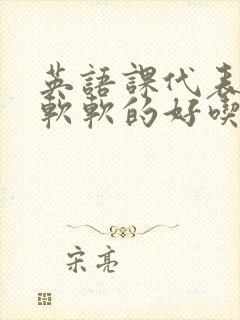 英語課代表
軟軟的好喫
宋亮